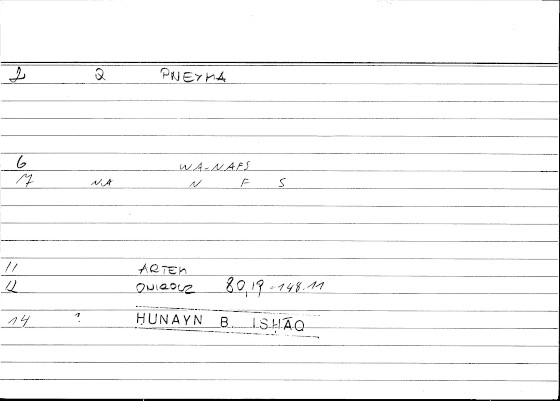 2 Q PNEYMA
6 WA-NAFS
17 NA N F S
11 ARTEM
12 ONIROCR 80,19-148.11
14 ? HUNAYN B. ISHĀQ